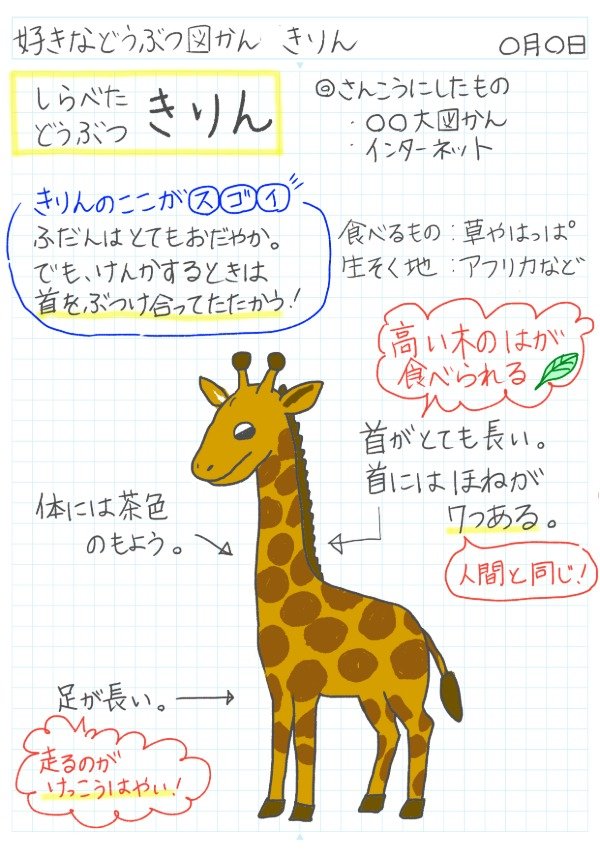 好きなどうぶつ図かん きりん
〇月〇日
しらべた
どうぶつ
きりん
◎さんこうにしたもの
・〇〇大図かん
・インターネット
きりんのここがスゴイ
ふだんはとてもおだやか。
でも、けんかするときは
首をぶつけ合ってたたかう!
食べるもの:草やはっぱ
生そく地:アフリカなど
高い木のはが
食べられる
首がとても長い。
首にはほねが
7つある。
人間と同じ!
体には茶色
のもよう。
足が長い。
走るのが
けっこうはやい!